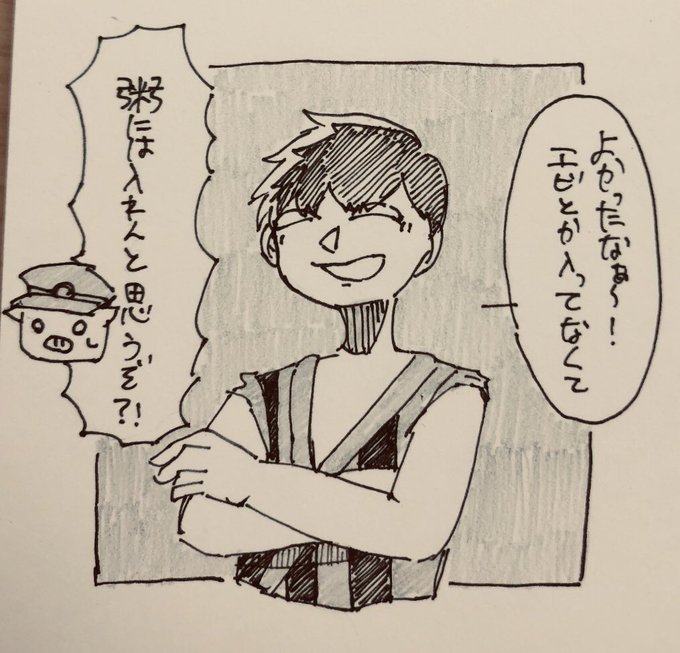 よかったなぁ〜!
エビとか入ってなくて
粥には入れんと思うぞ?!